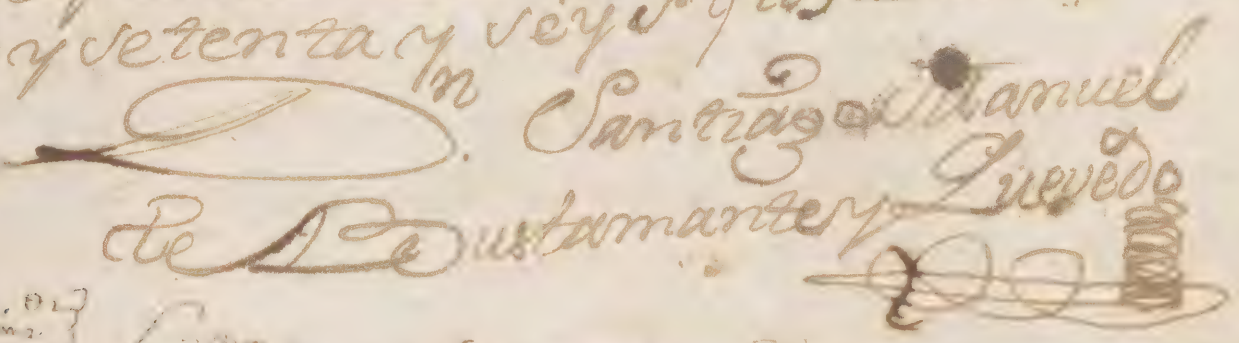 y setenta y seys
Dn. Santiago Manuel
de Bustamante y Quevedo